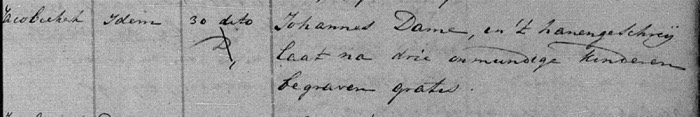 Jacobikerk Idem 30 dito Johannes Dame, in 't hanengeschreij
laat na drie onmundige kinderen
begraven gratis.